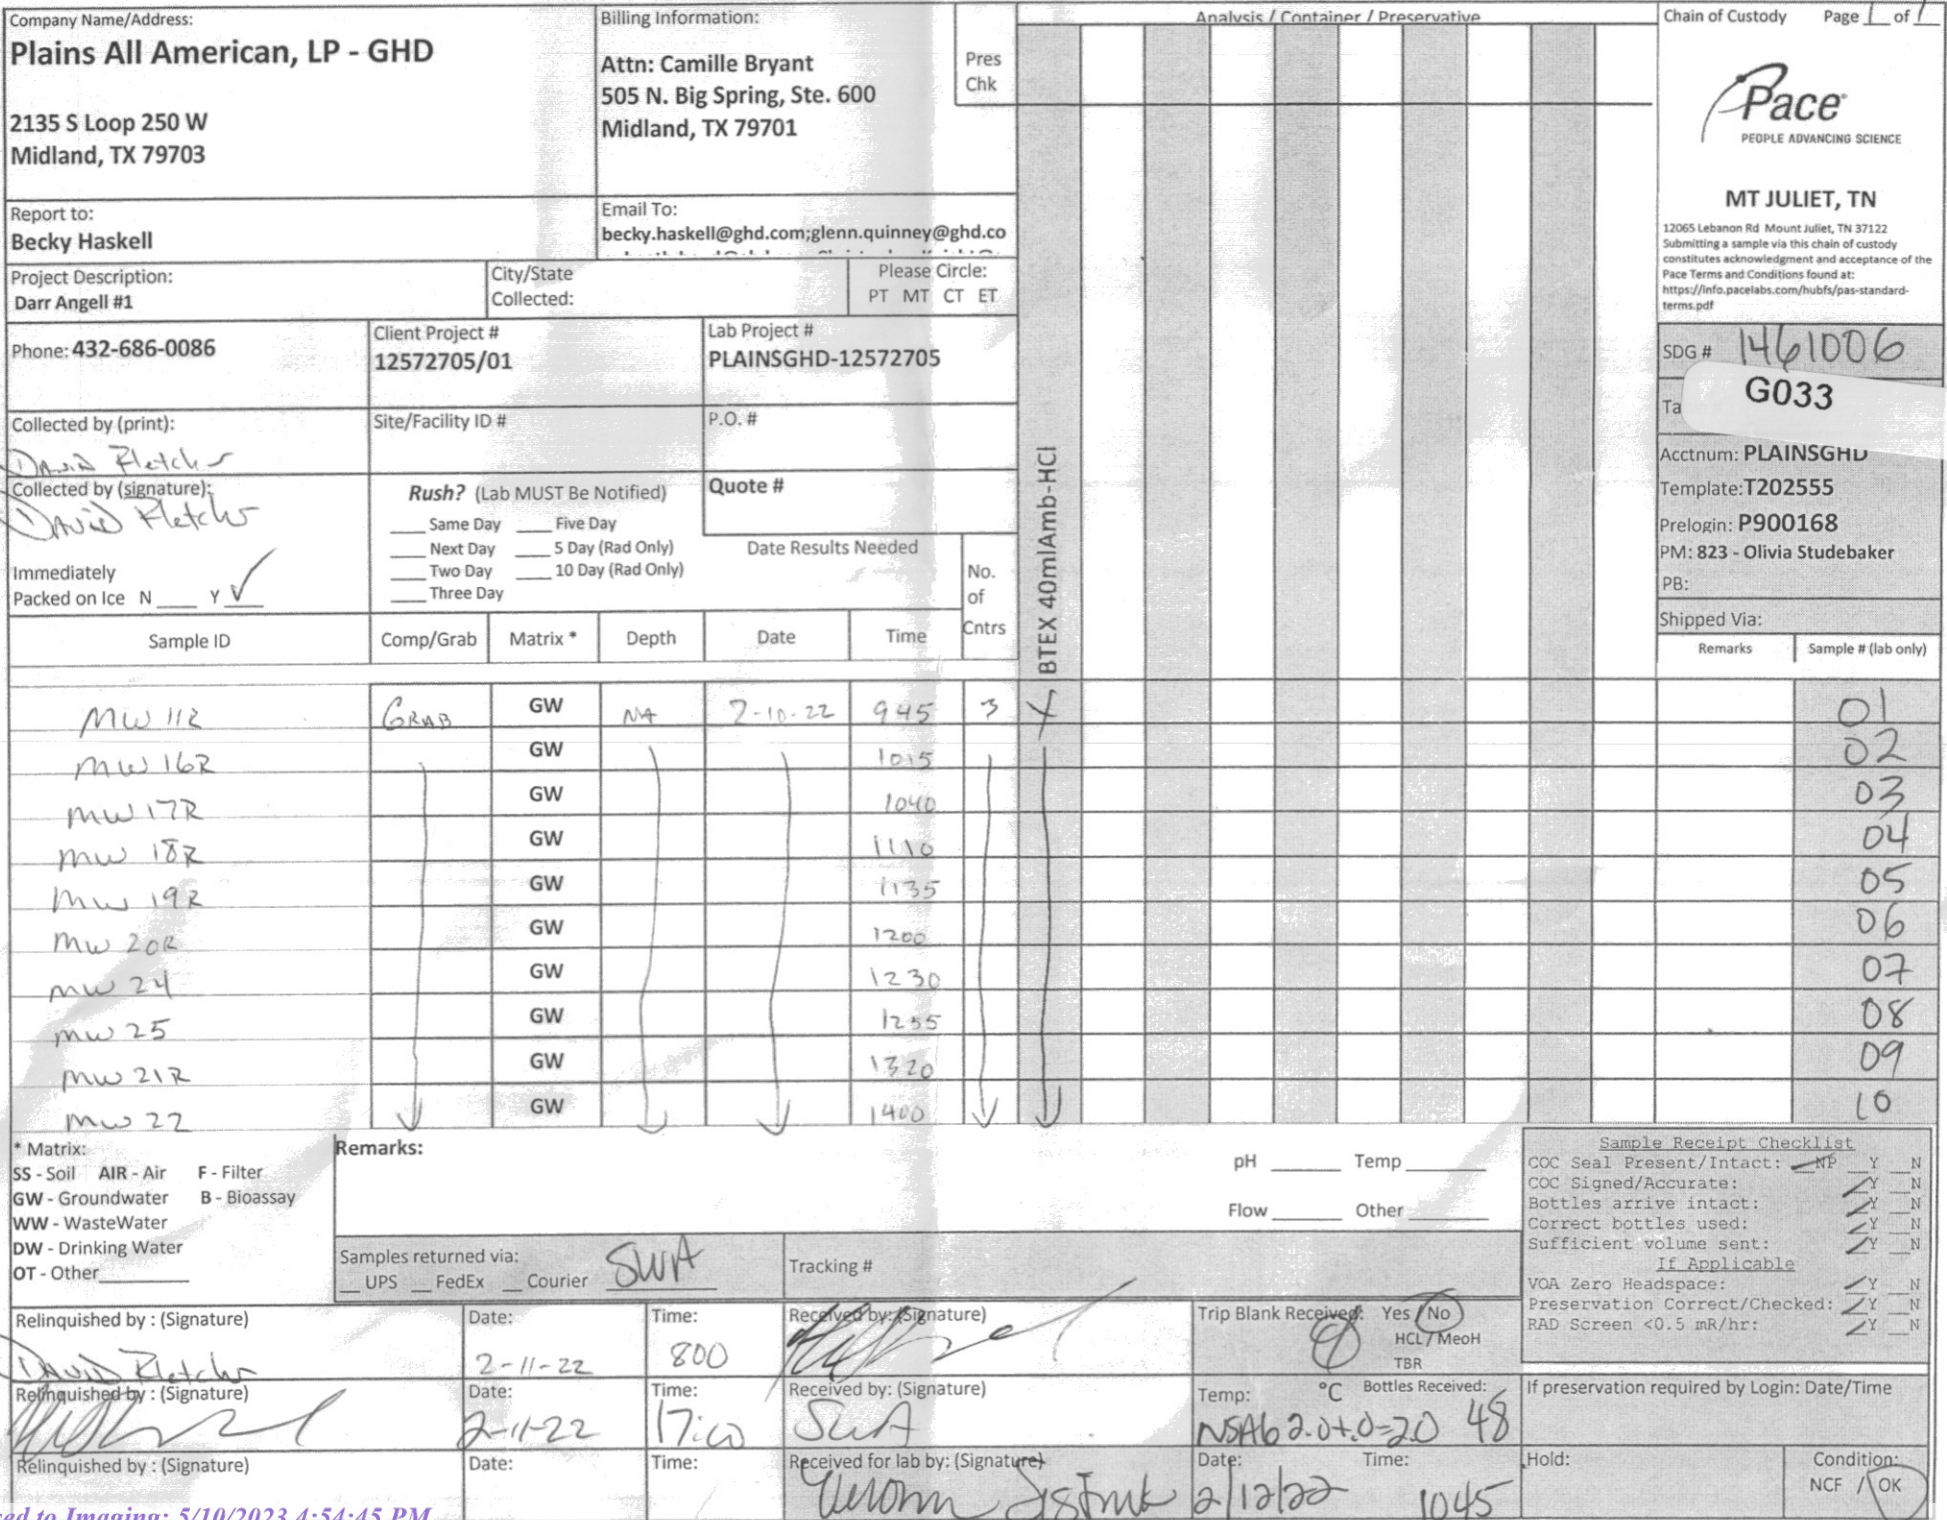 Company Name/Address:
Plains All American, LP - GHD
2135 S Loop 250 W
Midland, TX 79703
Billing Information:
Attn: Camille Bryant
505 N. Big Spring, Ste. 600
Midland, TX 79701
Pres
Chk
Analysis / Container / Preservative
Chain of Custody Page 1 of 1
Pace
PEOPLE ADVANCING SCIENCE
MT JULIET, TN
12065 Lebanon Rd Mount Juliet, TN 37122
Submitting a sample via this chain of custody
constitutes acknowledgment and acceptance of the
Pace Terms and Conditions found at:
https://info.pacelabs.com/hubfs/pas-standard-
terms.pdf
Report to:
Becky Haskell
Email To:
becky.haskell@ghd.com;glenn.quinney@ghd.co
Project Description:
Darr Angell #1
City/State
Collected:
Please Circle:
PT MT CT ET
Phone: 432-686-0086
Client Project #
12572705/01
Lab Project #
PLAINSGHD-12572705
SDG # 1461006
Ta
G033
Collected by (print):
David Fletcher
Site/Facility ID #
P.O. #
Acctnum: PLAINSGHD
Template: T202555
Prelogin: P900168
PM: 823 - Olivia Studebaker
PB:
Shipped Via:
Collected by (signature):
David Fletcher
Rush? (Lab MUST Be Notified)
Same Day Five Day
Next Day 5 Day (Rad Only)
Two Day 10 Day (Rad Only)
Three Day
Quote #
Date Results Needed
Immediately
Packed on Ice N Y ✓
No.
of
Cntrs
BTEX 40mlAmb-HCl
Sample ID Comp/Grab Matrix * Depth Date Time Remarks Sample # (lab only)
MW 11R GRAB GW NA 2-10-22 945 3 X 01
MW 16R GW 1015 02
MW 17R GW 1040 03
MW 18R GW 1110 04
MW 19R GW 1135 05
MW 20R GW 1200 06
MW 24 GW 1230 07
MW 25 GW 1255 08
MW 21R GW 1320 09
MW 22 GW 1400 10
* Matrix:
SS - Soil AIR - Air F - Filter
GW - Groundwater B - Bioassay
WW - WasteWater
DW - Drinking Water
OT - Other
Remarks:
pH Temp
Flow Other
Samples returned via:
UPS FedEx Courier SWA
Tracking #
Sample Receipt Checklist
COC Seal Present/Intact: NP Y N
COC Signed/Accurate: Y N
Bottles arrive intact: Y N
Correct bottles used: Y N
Sufficient volume sent: Y N
If Applicable
VOA Zero Headspace: Y N
Preservation Correct/Checked: Y N
RAD Screen <0.5 mR/hr: Y N
Relinquished by : (Signature)
David Fletcher
Date:
2-11-22
Time:
800
Received by: (Signature)
Trip Blank Received: Yes / No
HCL / MeoH
TBR
Relinquished by : (Signature)
Date:
2-11-22
Time:
17:00
Received by: (Signature)
SWA
Temp: °C Bottles Received:
NSA6 2.0+.0=2.0 48
If preservation required by Login: Date/Time
Relinquished by : (Signature)
Date:
Time:
Received for lab by: (Signature)
Date:
2/12/22
Time:
1045
Hold:
Condition:
NCF / OK
ed to Imaging: 5/10/2023 4:54:45 PM